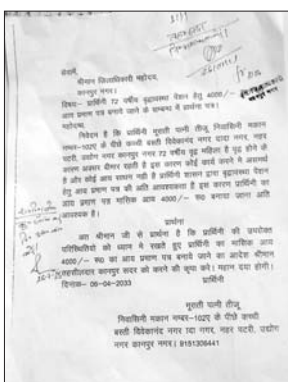 सेवामें,
श्रीमान जिलाधिकारी महोदय,
कानपुर नगर।
विषय:- प्रार्थिनी 72 वर्षीय वृद्धावस्था पेंशन हेतु 4000/-
आय प्रमाण पत्र बनाये जाने के सम्बन्ध में प्रार्थना पत्र।
महोदय,
निवेदन है कि प्रार्थिनी मूराती पत्नी तीजू, निवासिनी मकान
नम्बर-102ए के पीछे कच्ची बस्ती विवेकानंद नगर दादा नगर, नहर
पटरी, उद्योग नगर कानपुर नगर 72 वर्षीय वृद्ध महिला है वृद्ध होने के
कारण अक्सर बीमार रहती है इस कारण कोई कार्य करने में असमर्थ
है और कोई आय साधन नही है प्रार्थिनी शासन द्वारा वृद्धावस्था पेंशन
हेतु आय प्रमाण पत्र की अति आवश्यकता है इस कारण प्रार्थिनी का
आय प्रमाण पत्र मासिक आय 4000/- रू0 बनाया जाना अति
आवश्यक है।
प्रार्थना
अतः श्रीमान जी से प्रार्थना है कि प्रार्थिनी की उपरोक्त
परिस्थितियो को ध्यान में रखते हुए प्रार्थिनी का मासिक आय
4000/- रू0 का आय प्रमाण पत्र बनाये जाने का आदेश श्रीमान
तहसीलदार कानपुर सदर को करने की कृपा करे। महान दया होगी।
दिनांक- 06-04-2033
प्रार्थिनी
मूराती पत्नी तीजू
निवासिनी मकान नम्बर-102ए के पीछे कच्ची
बस्ती विवेकानंद नगर दादा नगर, नहर पटरी, उद्योग
नगर कानपुर नगर। 9151306441